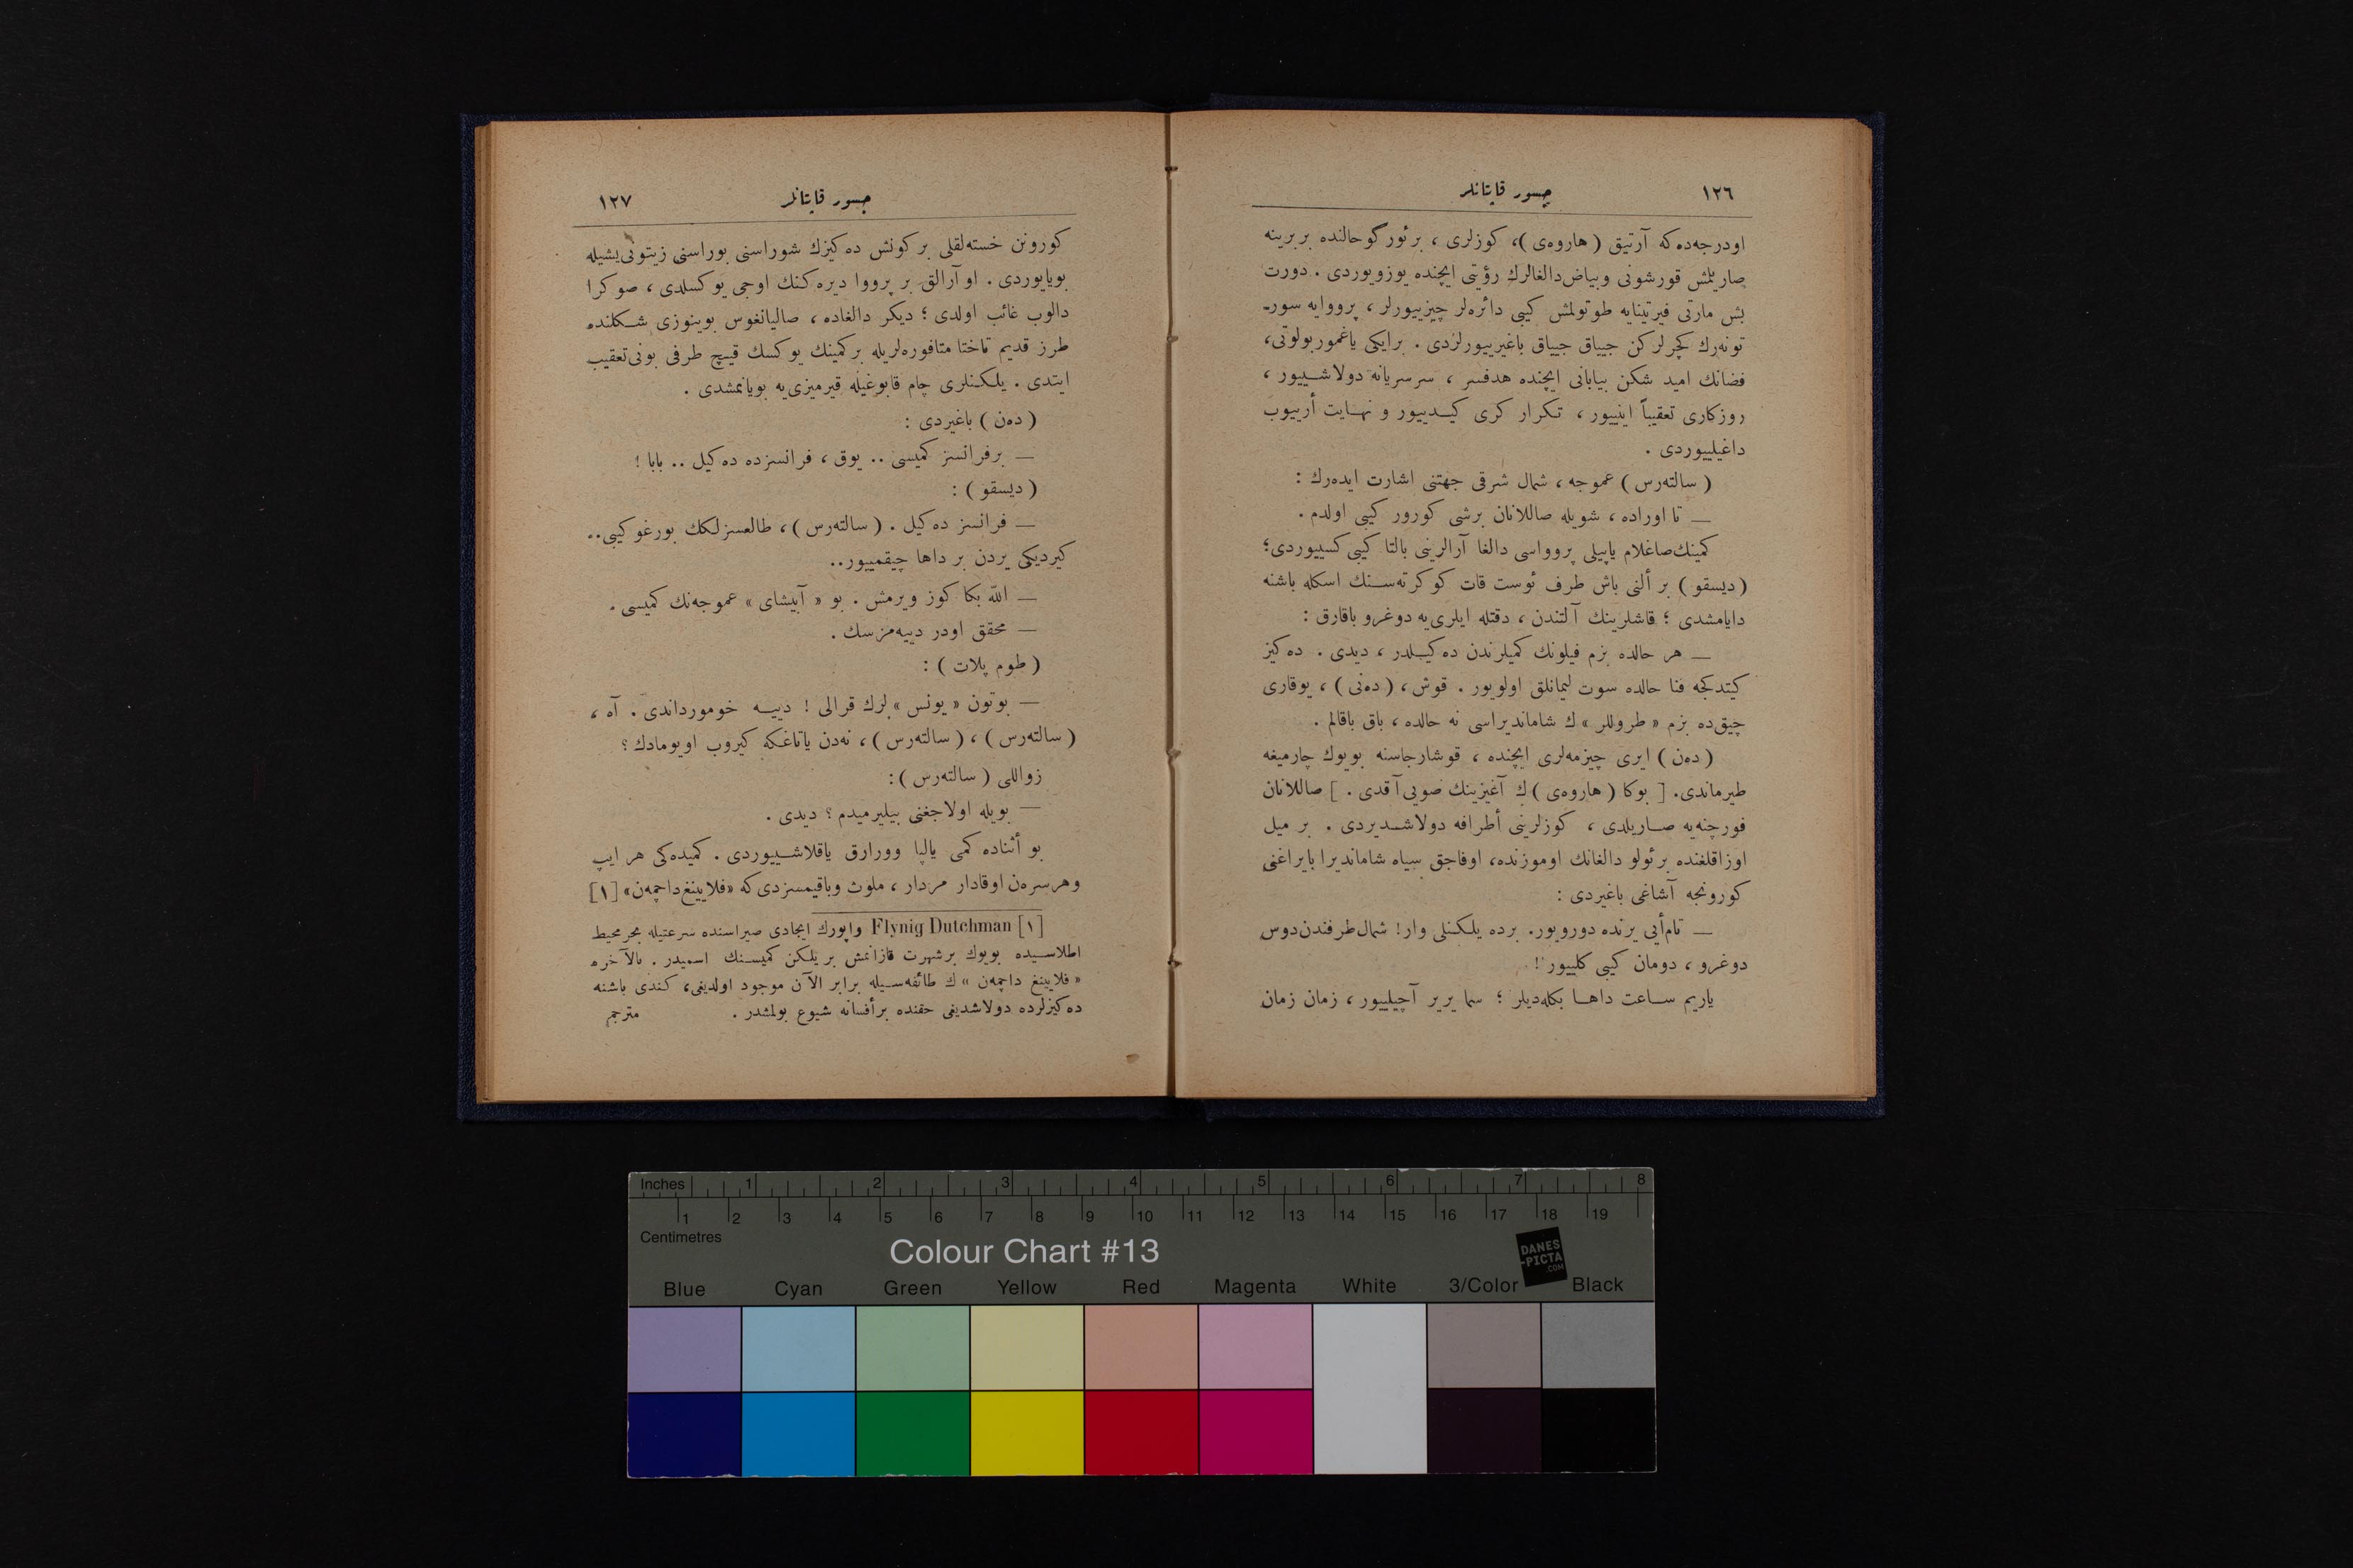 ١٢٦
جسور قاپتانلر
اودرجه‌ده‌كه آرتيق (هاروه‌ى)، كوزلرى، بر ئورگو حالنده بربرينه
صاريلمش قورشونى وبياض دالغالرك رؤيتى ايچنده يوزويوردى. دورت
بش مارتى فيرتينايه طوتولمش كيبى دائره‌لر چيزييورلر، پرووايه سور-
تونه‌رك كچرلركن جيياق جيياق باغيرييورلردى. برايكى ياغموربولوتى،
فضانك اميد شكن بيابانى ايچنده هدفسز، سرسريانه دولاشييور،
روزكارى تعقيباً اينييور، تكرار كرى كيدييور و نهايت أرييوب
داغيلييوردى.
(سالته‌رس) عموجه، شمال شرقى جهتنى اشارت ايده‌رك:
— تا اوراده، شويله صاللانان برشى كورور كيبى اولدم.
كمينك صاغلام ياپيلى پروواسى دالغا آرالرينى بالتا كيبى كسييوردى؛
(ديسقو) بر ألنى باش طرف ئوست قات كوكرته‌سنك اسكله باشنه
دايامشدى؛ قاشلرينك آلتندن، دقتله ايلرى‌يه دوغرو باقارق:
— هر حالده بزم فيلونك كميلرندن ده‌كيلدر، ديدى. ده‌كيز
كيتدكجه فنا حالده سوت ليمانلق اوليور. قوش، (ده‌نى)، يوقارى
چيق‌ده بزم «طروللر» ك شامانديراسى نه حالده، باق باقالم.
(ده‌ن) ايرى چيزمه‌لرى ايچنده، قوشارجاسنه بويوك چارميغه
طيرماندى. [بوكا (هاروه‌ى) ك آغيزينك صويى آقدى.] صاللانان
فورچته‌يه صاريلدى، كوزلرينى أطرافه دولاشديردى. بر ميل
اوزاقلغنده بر ئولو دالغانك اوموزنده، اوفاجق سياه شامانديرا بايراغنى
كورونجه آشاغى باغيردى:
— تام‌أيى يرنده دورويور. برده يلكنلى وار! شمال طرفندن دوس
دوغرو، دومان كيبى كلييور!
ياريم ساعت داها بكله‌ديلر؛ سما يرير آچيلييور، زمان زمان
جسور قاپتانلر
١٢٧
كورونن خسته‌لقلى بر كونش ده‌كيزك شوراسنى بوراسنى زيتونى يشيله
بويايوردى. او آرالق بر پرووا ديره‌كنك اوجى يوكسلدى، صوكرا
دالوب غائب اولدى؛ ديكر دالغاده، صاليانغوس بوينوزى شكلنده
طرز قديم تاختا متافوره‌لريله بركمينك يوكسك قيچ طرفى بونى تعقيب
ايتدى. يلكنلرى چام قابوغيله قيرميزى‌يه بويانمشدى.
(ده‌ن) باغيردى:
— برفرانسز كميسى.. يوق، فرانسزده ده‌كيل.. بابا!
(ديسقو):
— فرانسز ده‌كيل. (سالته‌رس)، طالعسزلكك بورغو كيبى..
كيرديكى يردن بر داها چيقمييور..
— الله بكا كوز ويرمش. بو «آبيشاى» عموجه‌نك كميسى.
— محقق اودر دييه‌مزسك.
(طوم پلات):
— بوتون «يونس» لرك قرالى! دييه خومورداندى. آه،
(سالته‌رس)، (سالته‌رس)، نه‌دن ياتاغكه كيروب اويومادك؟
زواللى (سالته‌رس):
— بويله اولاجغنى بيليرميدم؟ ديدى.
بو أثناده كمى يالپا وورارق ياقلاشييوردى. كميده‌كى هر ايپ
وهرسرەن اوقادار مردار، ملوث وباقيمسزدى‌كه «فلايينغ داچمه‌ن» [١]
[١] Flynig Dutchman واپورك ايجادى صيراسنده سرعتيله بحرمحيط
اطلاسيده بويوك برشهرت قازانمش بر يلكن كميسنك اسميدر. بالآخره
«فلايينغ داچمه‌ن» ك طائفه‌سيله برابر الآن موجود اولديغى، كندى باشنه
ده‌كيزلرده دولاشديغى حقنده برأفسانه شيوع بولمشدر. مترجم
Inches 1 2 3 4 5 6 7 8
1 2 3 4 5 6 7 8 9 10 11 12 13 14 15 16 17 18 19
Centimetres
Colour Chart #13
DANES
-PICTA
.COM
Blue Cyan Green Yellow Red Magenta White 3/Color Black